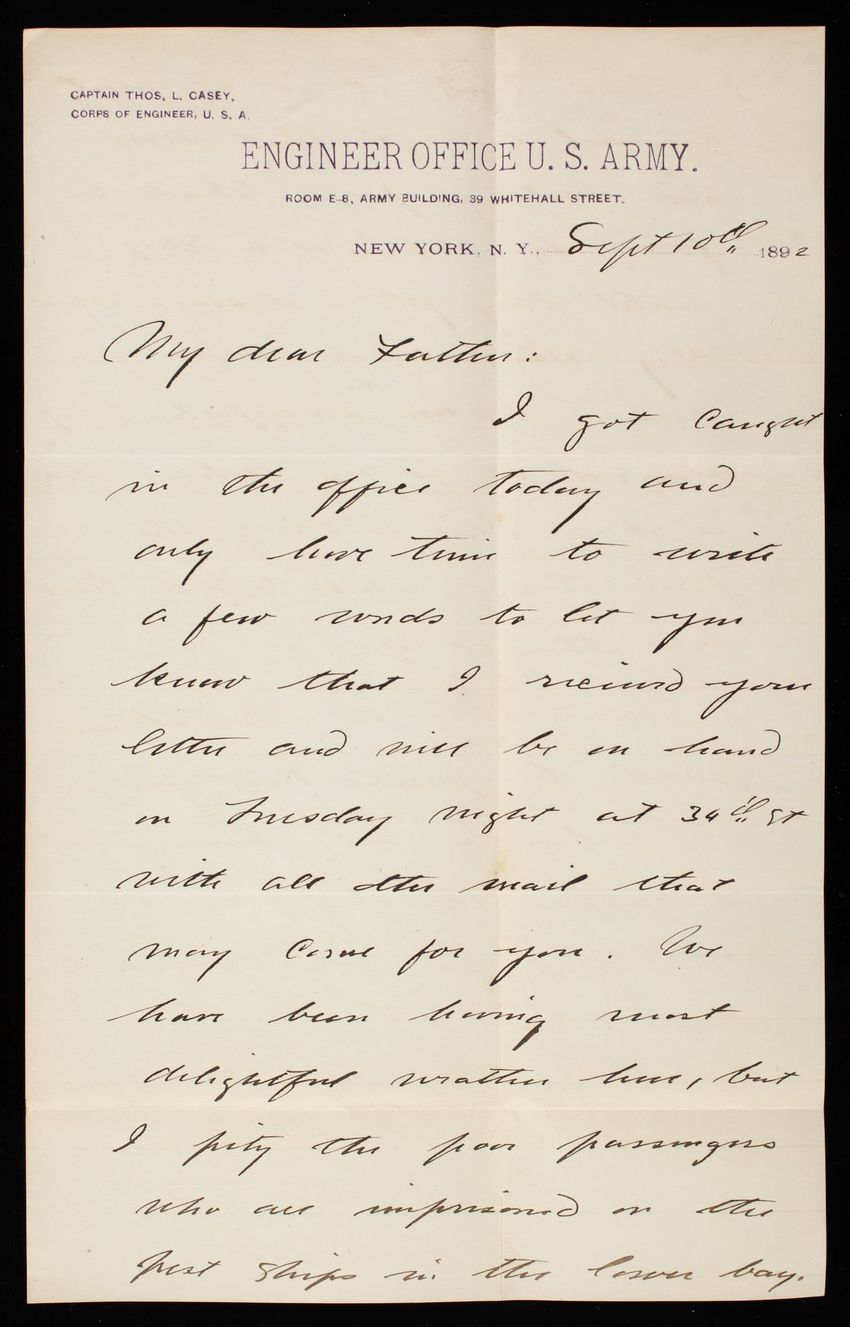 CAPTAIN THOS. L. CASEY,
CORPS OF ENGINEER, U. S. A.
ENGINEER OFFICE U. S. ARMY.
ROOM E-8, ARMY BUILDING, 39 WHITEHALL STREET.
NEW YORK, N. Y., Sept 10th 1892
My dear Father:
I got caught
in the office today and
only have time to write
a few words to let you
know that I received your
letter and will be on hand
on Tuesday night at 34th St
with all the mail that
may come for you. We
have been having most
delightful weather here, but
I pity the poor passengers
who are imprisoned on the
pest ships in the lower bay.